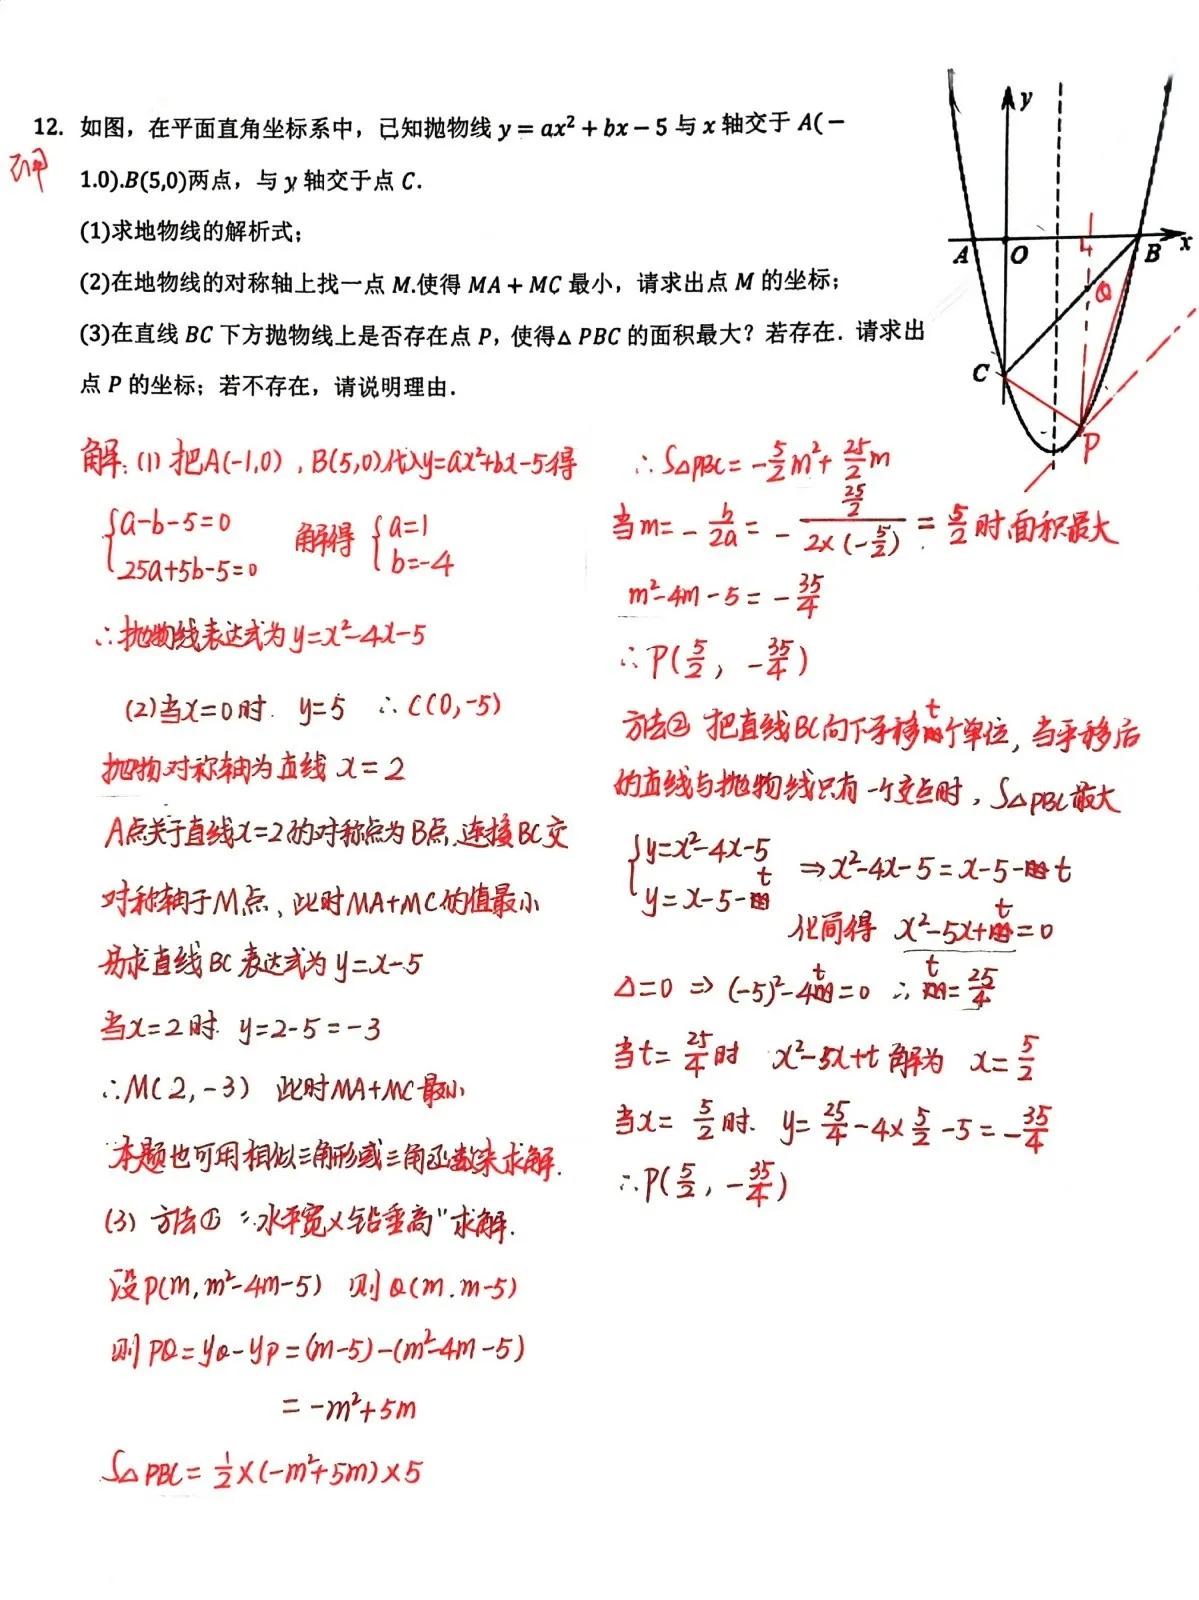 12. 如图，在平面直角坐标系中，已知抛物线 y = ax² + bx − 5 与 x 轴交于 A(−
1.0).B(5,0)两点，与 y 轴交于点 C.
(1)求地物线的解析式；
(2)在地物线的对称轴上找一点 M.使得 MA + MC 最小，请求出点 M 的坐标；
(3)在直线 BC 下方抛物线上是否存在点 P，使得△ PBC 的面积最大？若存在．请求出
点 P 的坐标；若不存在，请说明理由．
y
A
O
B
x
Q
C
P
解：(1) 把A(-1,0)，B(5,0)代入y=ax²+bx-5得
{a-b-5=0
25a+5b-5=0
解得 {a=1
b=-4
∴抛物线表达式为y=x²-4x-5
(2)当x=0时. y=5 ∴C(0,-5)
抛物对称轴为直线 x=2
A点关于直线x=2的对称点为B点,连接BC交
对称轴于M点、此时MA+MC的值最小
易求直线BC表达式为y=x-5
当x=2时. y=2-5=-3
∴M(2,-3) 此时MA+MC最小
本题也可用相似三角形或三角函数来求解.
(3) 方法① "水平宽×铅垂高"求解.
设P(m,m²-4m-5) 则Q(m.m-5)
则PQ=yQ-yP=(m-5)-(m²-4m-5)
=-m²+5m
S△PBC=1/2×(-m²+5m)×5
∴S△PBC=-5/2m²+25/2m
当m=-b/2a=-(25/2)/(2×(-5/2))=5/2时面积最大
m²-4m-5=-35/4
∴P(5/2,-35/4)
方法② 把直线BC向下平移t个单位,当平移后
的直线与抛物线只有一个交点时,S△PBC最大
{y=x²-4x-5
y=x-5-t
⇒x²-4x-5=x-5-t
化简得 x²-5x+t=0
△=0 ⇒(-5)²-4t=0 ∴t=25/4
当t=25/4时 x²-5x+t解为 x=5/2
当x=5/2时. y=25/4-4×5/2-5=-35/4
∴P(5/2,-35/4)